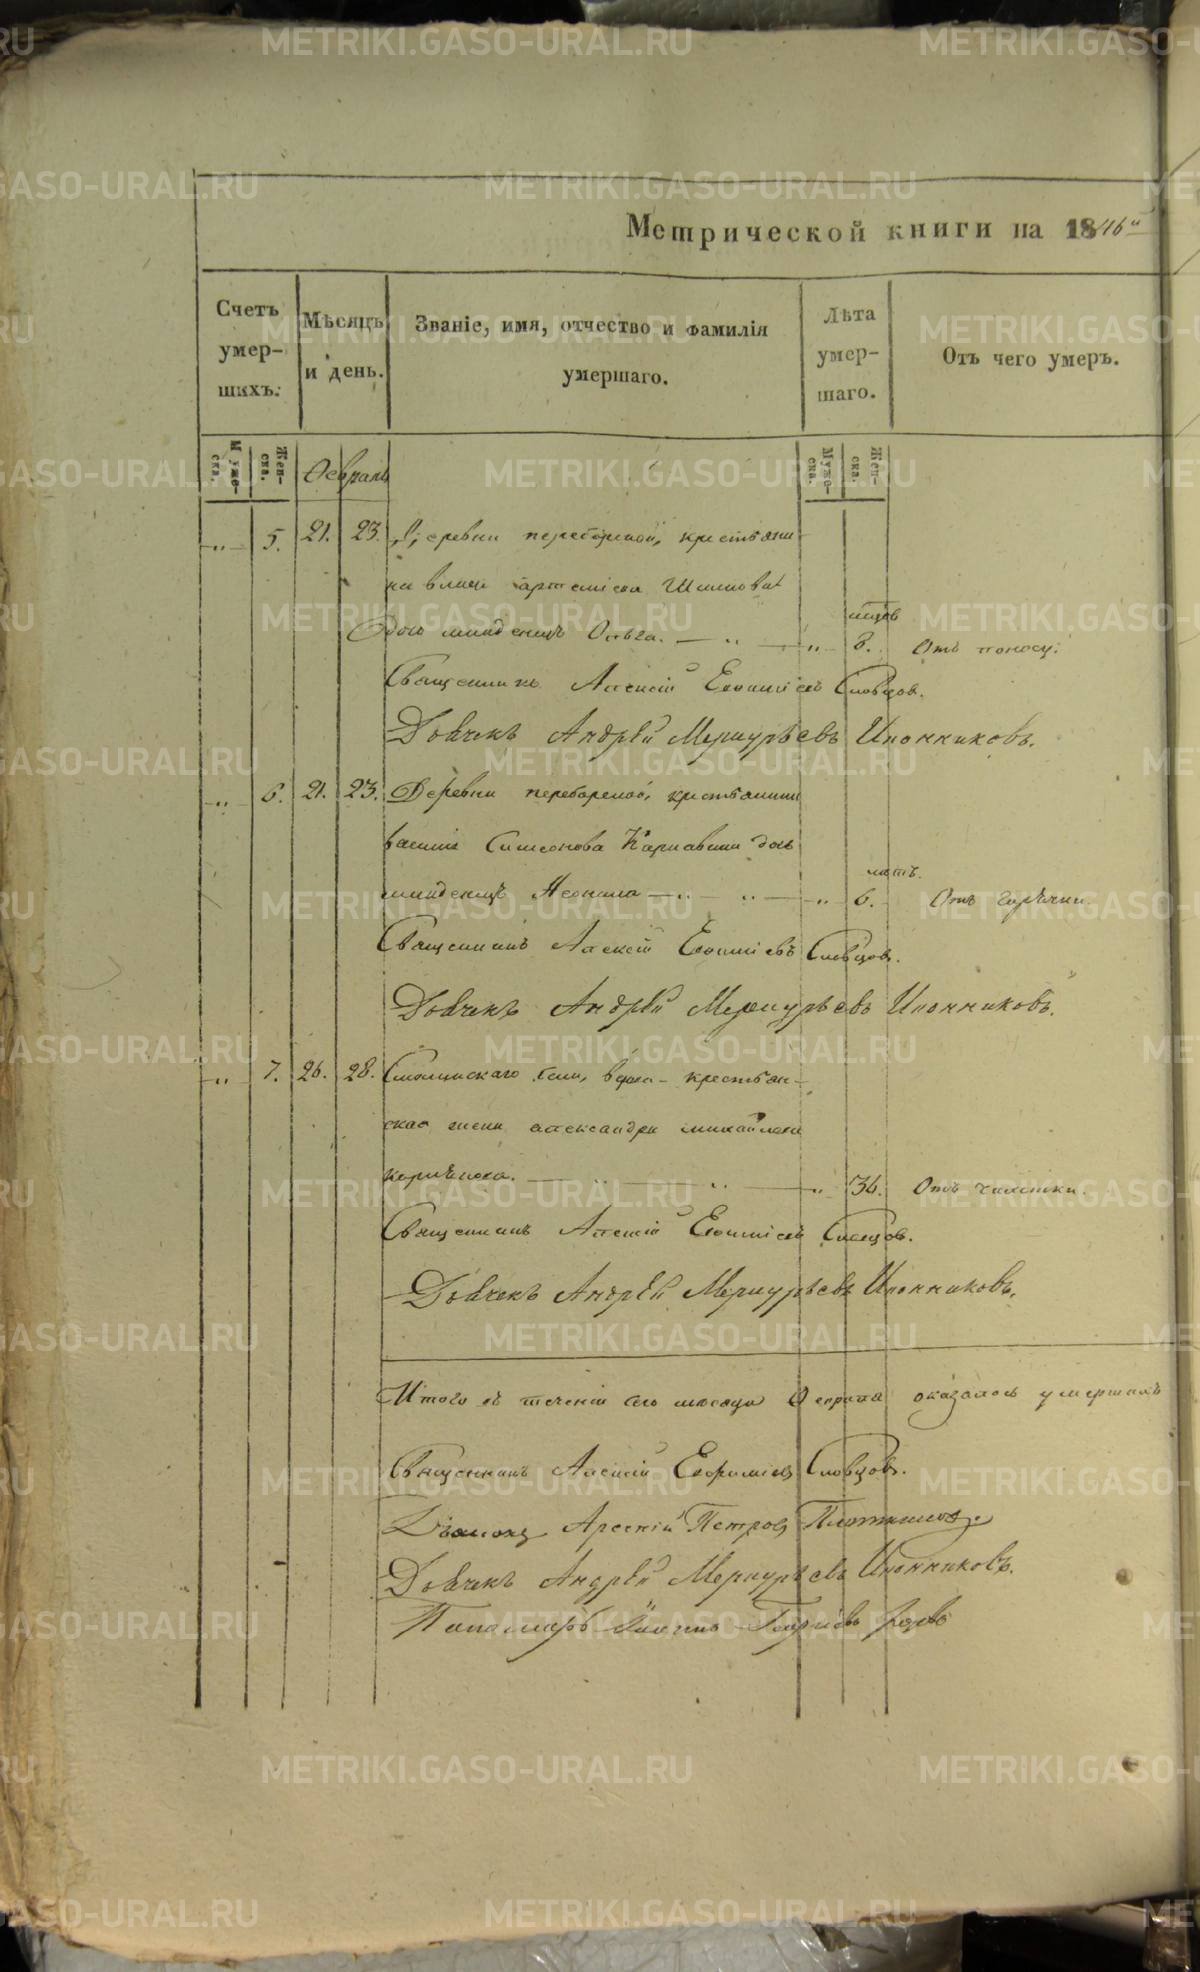 Метрической книги на 1846й
Счетъ умер-шихъ.
Мѣсяцъ и день.
Званіе, имя, отчество и фамилія умершаго.
Лѣта умер-шаго.
Отъ чего умеръ.
Муже-ска.
Жен-ска.
Февраль
Муже-ска.
Жен-ска.
„ 5. 21. 23. Деревни переборской, крестьяни
на артеміева
дочь младенецъ Ольга. — „ — „ 8. Отъ поносу.
Священникъ Алексій Евфиміевъ Словцов.
Дьячекъ Андрей Меркурьевъ Иконниковъ.
„ 6. 21. 23. Деревни переборской, крестьянина
василія Симеонова дочь
младенецъ — „ — „ — „ 6. Отъ горячки.
лѣтъ.
Священникъ Алексій Евфиміевъ Словцов.
Дьячекъ Андрей Меркурьевъ Иконниковъ.
„ 7. 26. 28. Смолинскаго села, вдова крестьян-
ская жена александра михайлова
— „ — „ — „ 36. Отъ чахотки.
Священникъ Алексій Евфиміевъ Словцов.
Дьячекъ Андрей Меркурьевъ Иконниковъ.
Итого въ теченіи сего месяца Февраля оказалось умершихъ
Священникъ Алексій Евфиміевъ Словцовъ.
Діаконъ Арсеній Петровъ Плотниковъ.
Дьячекъ Андрей Меркурьевъ Иконниковъ.
Пономарь
METRIKI.GASO-URAL.RU